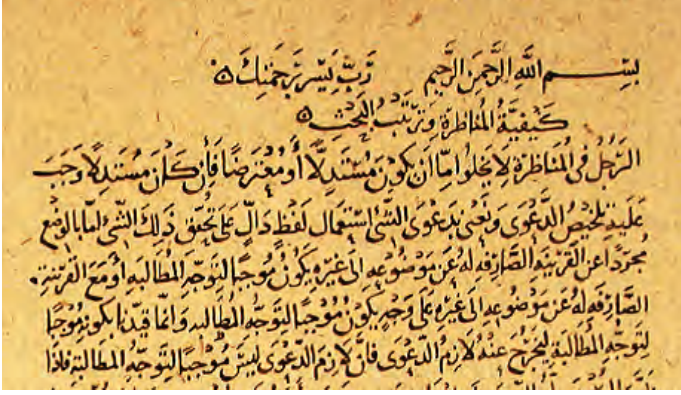 بسم الله الرحمن الرحيم رب يسر برحمتك
كَيْفِيَّةُ الْمُنَاظَرَةِ وَتَرْتِيبُ الْبَحْثِ
الرَّجُلُ فِي الْمُنَاظَرَةِ لَا يَخْلُوا امَّا اَن يَكُونَ مُسْتَدِلًّا أَو مُعْتَرِضًا فَأِن كَانَ مُسْتَدِلًا وَجَبَ
عَلَيْهِ تَلْخِيصُ الدَّعْوَى وَنَعْنِى بِدَعْوَى الشَّىْءِ اسْتِعْمَالَ لَفْظٍ دَالٍّ عَلَى تَحَقُّقِ ذَلِكَ الشَّىْءِ امّا بالوَضْعِ
مُجَرَّدًا عن القَرِينَةِ الصَّارِفَةِ لَهُ عَن مَوْضُوعِهِ الَى غَيْرِهِ يَكُونُ مُوجِبًا لتَوَجُّهِ المُطَالَبَةِ أَو مَعَ القَرِينَةِ
الصَّارِفَةِ لَهُ عَن مَوْضُوعِهِ الَى غَيْرِهِ عَلَى وَجْهٍ يَكُونُ مُوْجبًا لتَوَجُّهِ المُطَالبه وَانّمَا قيّدنَا بكَونهِ مُوجبًا
لتَوَجُّهِ المُطَالَبَةِ ليَخْرُجَ عَنْهُ لَازِمُ الدَّعْوَى فَانَّ لَازِمَ الدَّعْوَى لَيْسَ مُوجبًا لتَوَجُّهِ المطَالَبَةِ فَاذَا